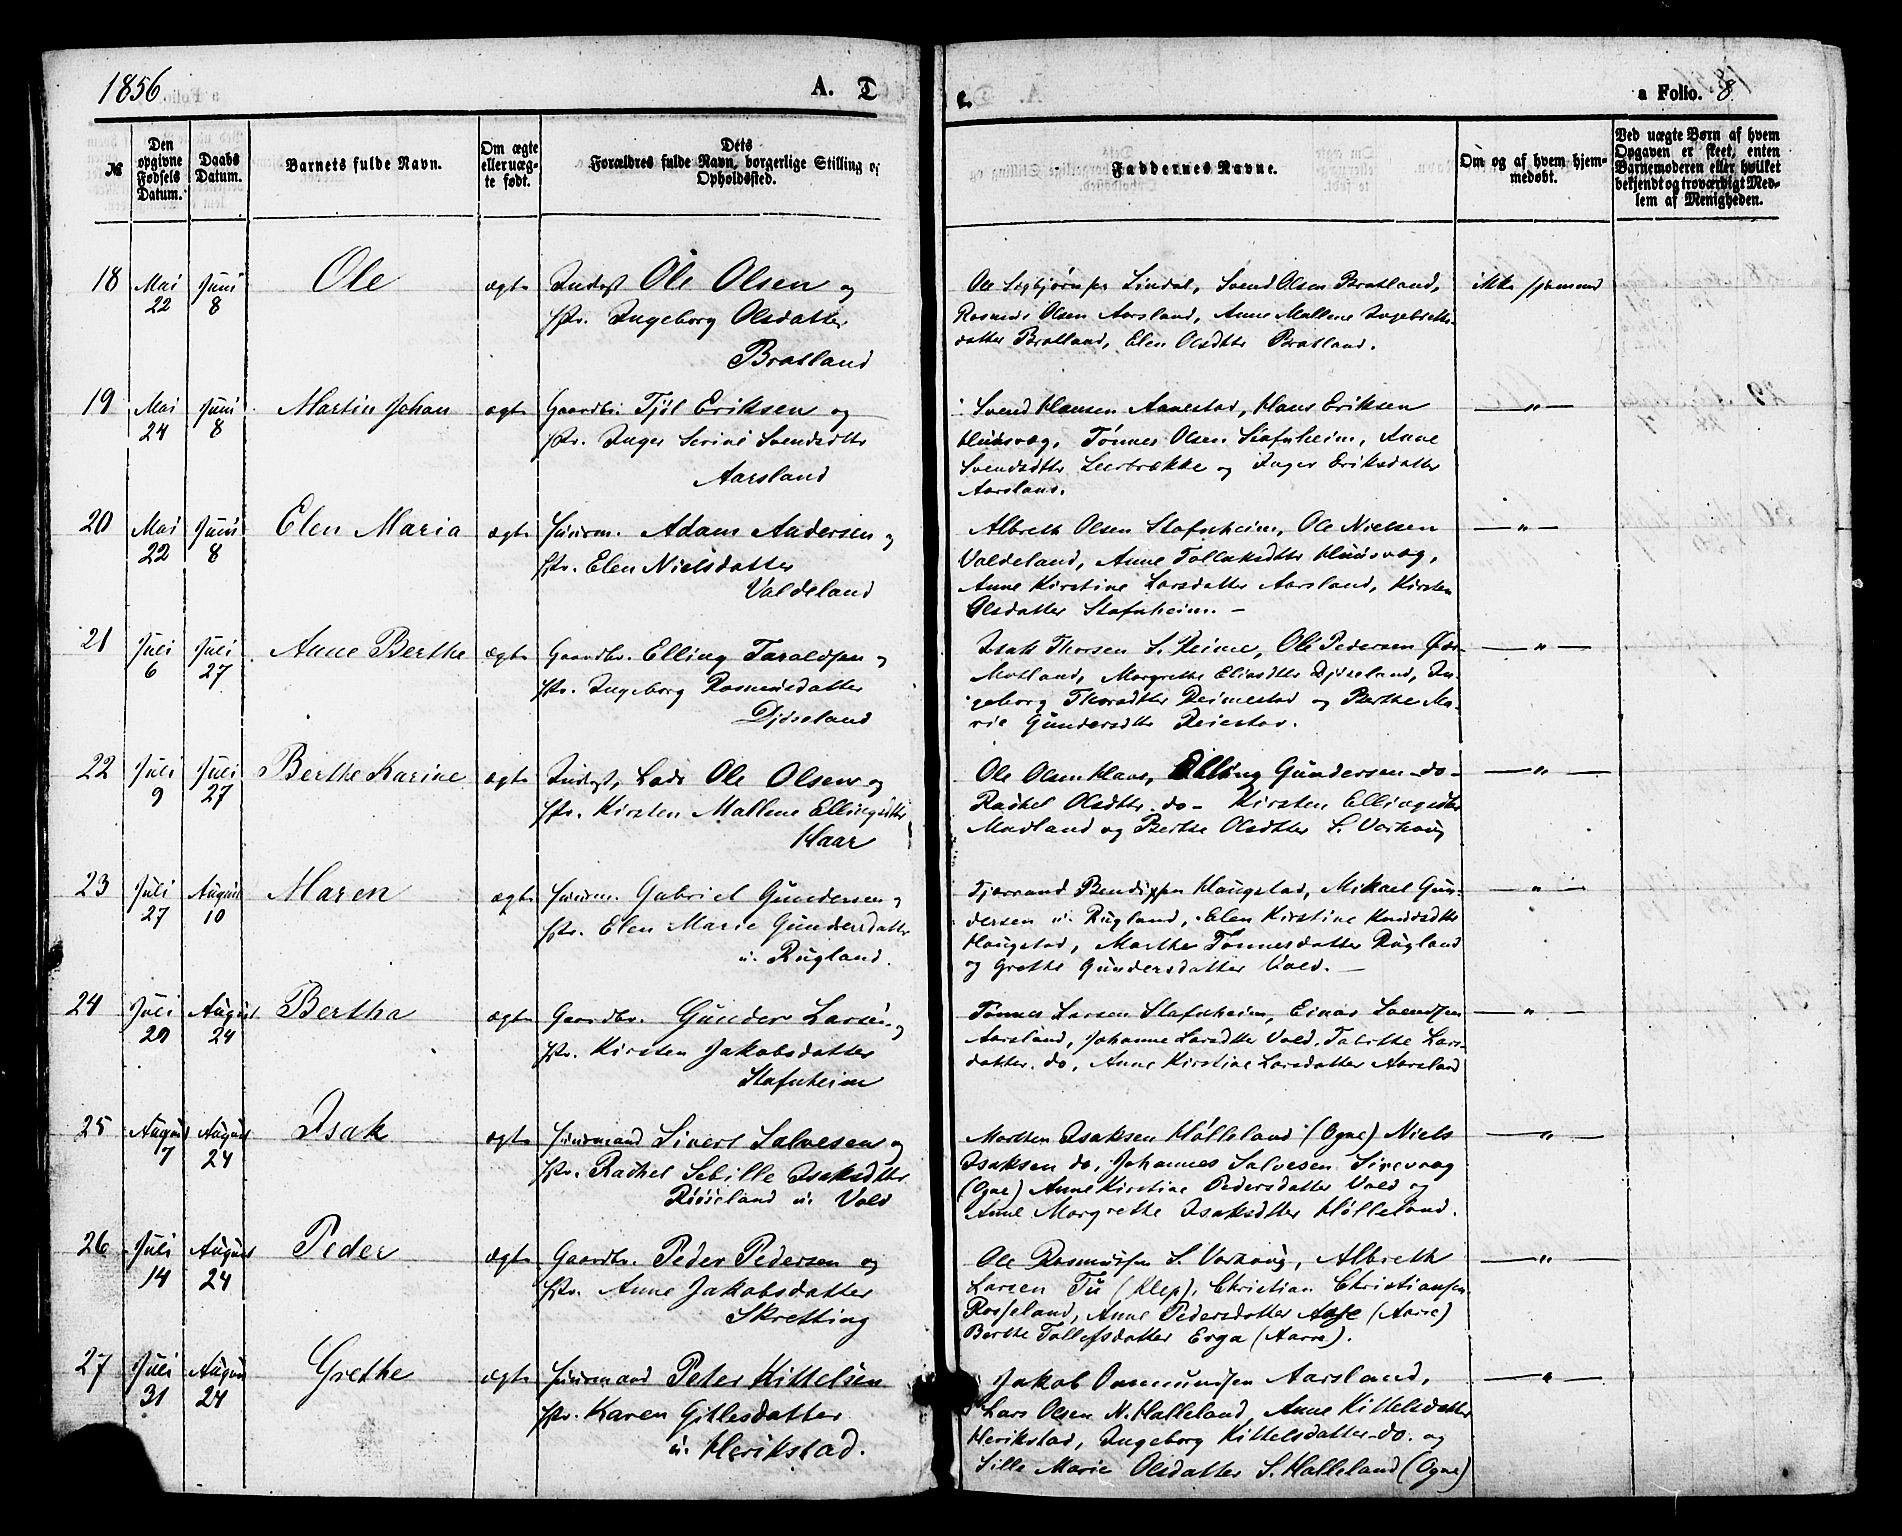 1856
A. D
e.
a Folio. 8
№
Den opgivne Fødsels Datum.
Daabs Datum.
Barnets fulde Navn.
Om ægte eller uæg-te født.
Dets
Forældres fulde Navn, borgerlige Stilling og
Opholdssted.
Faddernes Navne.
Om og af hvem hjem-
medøbt.
Ved uægte Børn af hvem
Opgaven er skeet, enten
Barnemoderen eller hvilket
bekjendt og troværdigt Med-
lem af Menigheden.
18 Mai 22 Juni 8 Ole ægte Inderst Ole Olsen og
Hstr. Ingeborg Olsdatter
Bratland
Ole Lindal, Svend Olsen Bratland,
Rasmus Olsen Aarsland, Anne Mallene Ingebretts-
datter Bratland, Elen Olsdtter Bratland.
ikke hjemmed
19 Mai 24 Juni 8 Martin Johan ægte Gaardbr. Tjöl Eriksen og
Hstr. Inger Serine Svendsdtter
Aarsland
Svend Hansen Aanestad, Hans Eriksen
Huusvæg, Tönnes Olsen Stafnheim, Anne
Svendsdtter Leerbrække og Inger Eriksdatter
Aarsland.
— " —
20 Mai 22 Juni 8 Elen Maria ægte Huusm. Adam Andersen og
Hstr. Elen Nielsdatter
Valdeland
Albreth Olsen Stafnheim, Ole Nielsen
Valdeland, Anne Tollaksdtter Huusvæg,
Anne Kirstine Larsdatter Aarsland, Kirsten
Olsdatter Stafnheim. —
— " —
21 Juli 6 Juli 27 Anne Berthe ægte Gaardbr. Elling Taraldsen og
Hstr. Ingeborg Rasmusdatter
Djöseland
Isak Thorsen S. Reime, Ole Pedersen
Motland, Margrethe Eliasdtter Djöseland, In-
geborg Thorsdtter Reimestad og Berthe Ma-
rie Gundersdtter Reiestad.
— " —
22 Juli 9 Juli 27 Berthe Karine ægte Inderst, Lods Ole Olsen og
Hstr. Kirsten Mallene Ellingsdtter
Haar
Ole Olsen Haar, Elling Gundersen do —
Rachel Olsdtter do — Kirsten Ellingsdtr
Madland og Berthe Olsdtter S. Varhoug
— " —
23 Juli 27 August 10 Maren ægte Huusm. Gabriel Gundersen og
Hstr. Elen Marie Gundersdatter
u. Rugland.
Tjerrand Bendixsen Haugstad, Mikael Gun-
dersen u. Rugland, Elen Kirstine Knudsdtter
Haugstad, Marthe Tönnesdatter Rugland
og Grethe Gundersdatter Vold. —
— " —
24 Juli 29 August 24 Bertha ægte Gaardbr. Gunder Larsen og
Hstr. Kirsten Jakobsdatter
Stafnheim
Tönnes Larsen Stafnheim, Einar Svendsen
Aarsland, Johanne Larsdtter Vold, Tabithe Lars-
datter do, Anne Kirstine Larsdatter Aarsland
— " —
25 August 7 August 24 Isak ægte Huusmand Sivert Salvesen og
Hstr. Rachel Sebille Isaksdtter
u. Vold
Morthen Isaksen Hölleland (Ogne) Niels
Isaksen do, Johannes Salvesen Sirevaag
(Ogne) Anne Kirstine Pedersdatter Vold og
Anne Margrethe Isaksdtter Hölleland.
— " —
26 Juli 14 August 24 Peder ægte Gaardbr. Peder Pedersen og
Hstr. Anne Jakobsdatter
Skretting
Ole Rasmussen S. Varhoug, Albreth
Larsen Tu (Klep), Christian Christiansen
Rosseland, Anne Pedersdatter (Aarre)
Berthe Tollefsdatter Erga (Aarre).
— " —
27 Juli 31 August 24 Grethe ægte Huusmand Peter Kittelsen
Hstr. Karen Gitlesdatter
u. Herikstad.
Jakob Ommundsen Aarsland,
Lars Olsen N. Halleland, Anne Kittelsdatter
Herikstad, Ingeborg Kittelsdatter do. og
Sille Marie Olsdatter S. Halleland (Ogne)
— " —